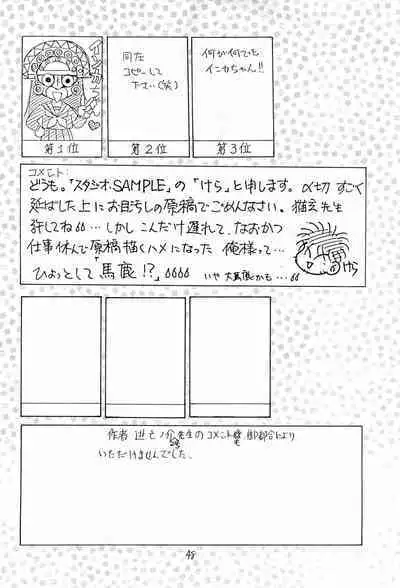 インカちゃん♡
第1位
同左
コピーして
下さい(笑)
第2位
何が何でも
インカちゃん!!
第3位
コメント:
どうも。「スタジオ.SAMPLE」の「けら」と申します。〆切 すごく
延ばした上にお目汚しの原稿でごめんなさい。猫玄先生
許してね… しかしこんだけ遅れて、なおかつ
仕事休んで原稿描くハメになった 俺様って…
ひょっとして「馬鹿!?」
いや 大馬鹿かも…
けら
作者 逃亡ノ介先生のコメント等 御都合により
いただけませんでした。
48